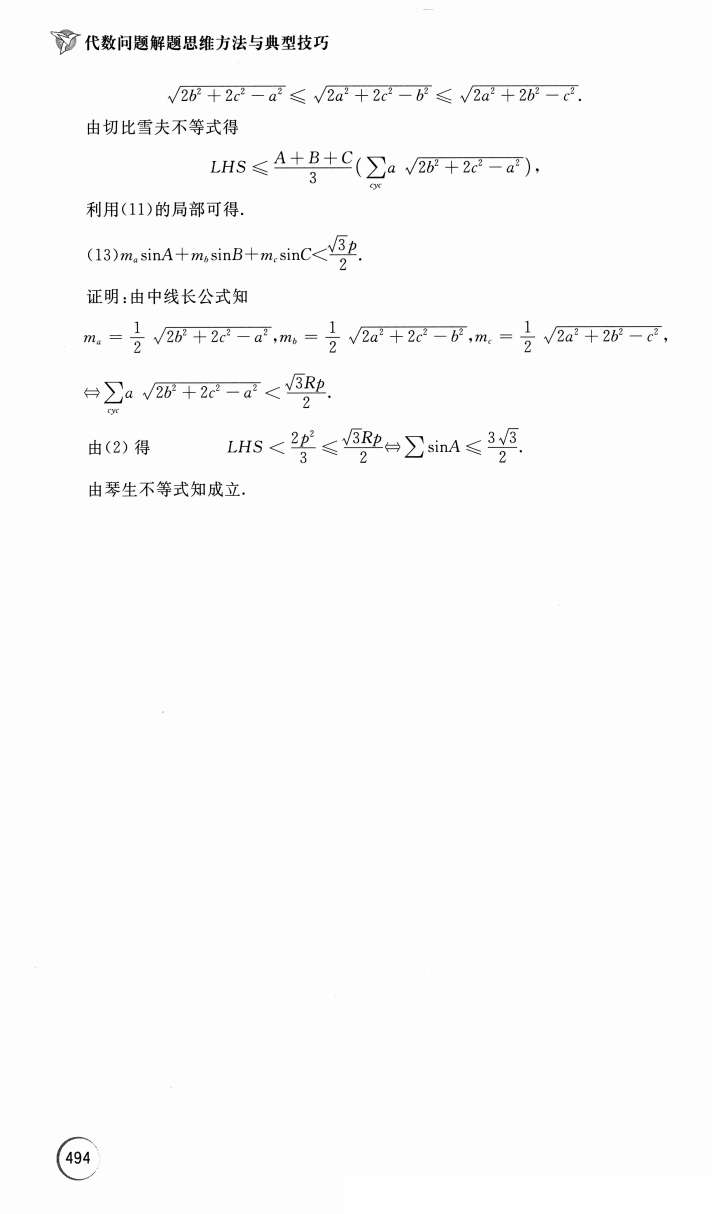 代数问题解题思维方法与典型技巧
√(2b² + 2c² − a²) ≤ √(2a² + 2c² − b²) ≤ √(2a² + 2b² − c²).
由切比雪夫不等式得
LHS ≤ (A+B+C)/3 (∑cyc a √(2b² + 2c² − a²)),
利用(11)的局部可得.
(13)mₐ sinA+m_b sinB+m_c sinC<√3p/2.
证明:由中线长公式知
mₐ = 1/2 √(2b² + 2c² − a²),m_b = 1/2 √(2a² + 2c² − b²),m_c = 1/2 √(2a² + 2b² − c²),
⇔∑cyc a √(2b² + 2c² − a²) < √3Rp/2.
由(2)得 LHS < 2p²/3 ≤ √3Rp/2 ⇔ ∑ sinA ≤ 3√3/2.
由琴生不等式知成立.
494